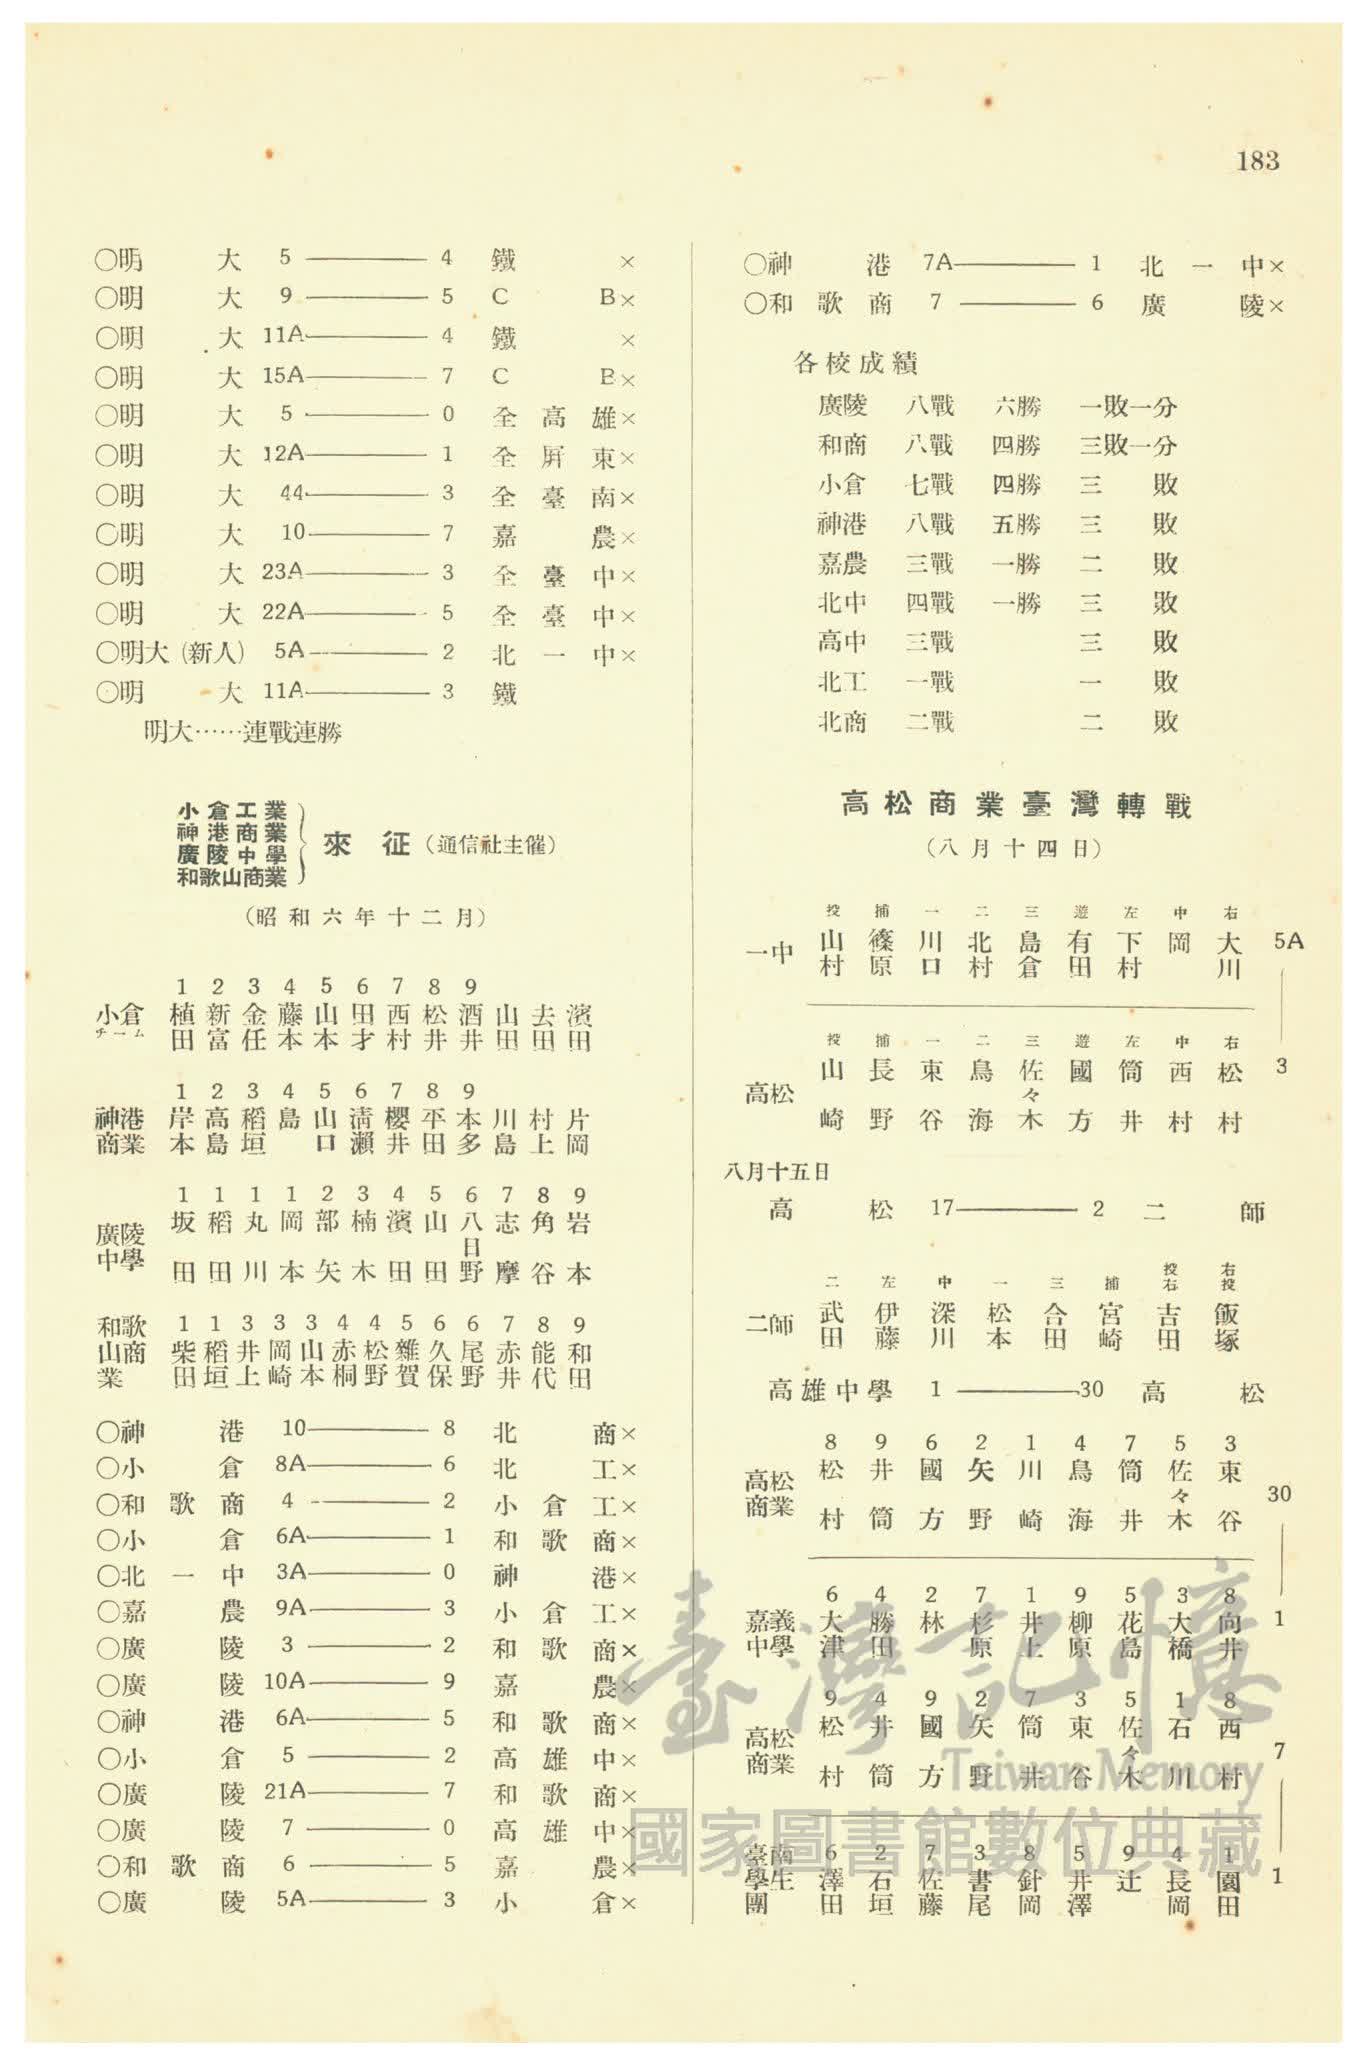 183
○明大 5 ——— 4 鐵 ×
○明大 9 ——— 5 CB×
○明大 11A ——— 4 鐵 ×
○明大 15A ——— 7 CB×
○明大 5 ——— 0 全高雄×
○明大 12A ——— 1 全屏東×
○明大 44 ——— 3 全臺南×
○明大 10 ——— 7 嘉農×
○明大 23A ——— 3 全臺中×
○明大 22A ——— 5 全臺中×
○明大(新人) 5A ——— 2 北一中×
○明大 11A ——— 3 鐵
明大……連戰連勝
小倉工業
神港商業
廣陵中學
和歌山商業
來征(通信社主催)
(昭和六年十二月)
1 2 3 4 5 6 7 8 9
小倉チーム 植田 新富 金任 藤本 山本 田才 西村 松井 酒井 山田 去田 濱田
1 2 3 4 5 6 7 8 9
神港商業 岸本 高島 稻垣 島 山口 淸瀨 櫻井 平田 本多 川島 村上 片岡
1 1 1 1 2 3 4 5 6 7 8 9
廣陵中學 坂田 稻田 丸川 岡本 部矢 楠木 濱田 山田 八日野 志摩 角谷 岩本
1 1 3 3 3 4 4 5 6 6 7 8 9
和歌山商業 柴田 稻垣 井上 岡崎 山本 赤桐 松野 雜賀 久保 尾野 赤井 能代 和田
○神港 10 ——— 8 北商×
○小倉 8A ——— 6 北工×
○和歌商 4 ——— 2 小倉工×
○小倉 6A ——— 1 和歌商×
○北一中 3A ——— 0 神港×
○嘉農 9A ——— 3 小倉工×
○廣陵 3 ——— 2 和歌商×
○廣陵 10A ——— 9 嘉農×
○神港 6A ——— 5 和歌商×
○小倉 5 ——— 2 高雄中×
○廣陵 21A ——— 7 和歌商×
○廣陵 7 ——— 0 高雄中×
○和歌商 6 ——— 5 嘉農×
○廣陵 5A ——— 3 小倉×
○神港 7A ——— 1 北一中×
○和歌商 7 ——— 6 廣陵×
各校成績
廣陵 八戰 六勝 一敗一分
和商 八戰 四勝 三敗一分
小倉 七戰 四勝 三敗
神港 八戰 五勝 三敗
嘉農 三戰 一勝 二敗
北中 四戰 一勝 三敗
高中 三戰 三敗
北工 一戰 一敗
北商 二戰 二敗
高松商業臺灣轉戰
(八月十四日)
投 捕 一 二 三 遊 左 中 右
一中 山村 篠原 川口 北村 島倉 有田 下村 岡 大川 5A
投 捕 一 二 三 遊 左 中 右
高松 山崎 長野 東谷 鳥海 佐々木 國方 筒井 西村 松村 3
八月十五日
高松 17 ——— 2 二師
二 左 中 一 三 捕 投右 右投
二師 武田 伊藤 深川 松本 合田 宮崎 吉田 飯塚
高雄中學 1 ——— 30 高松
8 9 6 2 1 4 7 5 3
高松商業 松村 井筒 國方 矢野 川崎 鳥海 筒井 佐々木 東谷 30
6 4 2 7 1 9 5 3 8
嘉義中學 大津 勝田 林 杉原 井上 柳原 花島 大橋 向井 1
9 4 9 2 7 3 5 1 8
高松商業 松村 井筒 國方 矢野 筒井 東谷 佐々木 石川 西村 7
6 2 7 3 8 5 9 4 1
臺南學生團 澤田 石垣 佐藤 書尾 針岡 井澤 辻 長岡 園田 1
臺灣記憶
Taiwan Memory
國家圖書館數位典藏